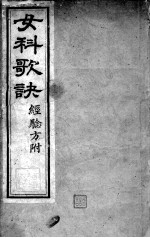 女科歌訣
經驗方附